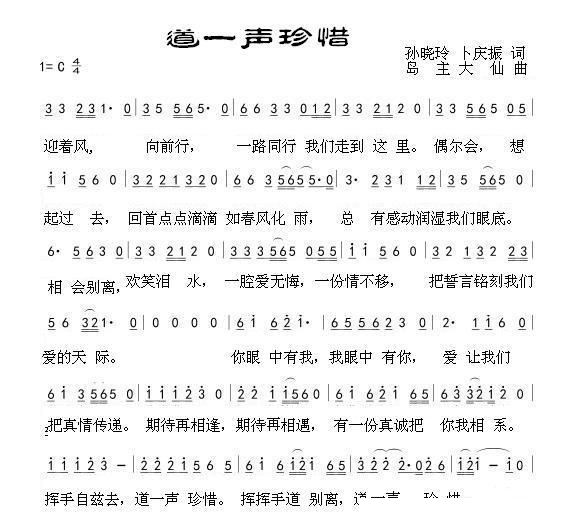 道一声珍惜
孙晓玲 卜庆振 词
1=C 4/4
岛 主大 仙 曲
3 3 231· 0 | 35 565· 0 | 66 33 012 | 33 212 0 | 33 565 05 |
迎着风, 向前行, 一路同行 我们走到 这 里。偶尔会, 想
i i 5 6 0 | 3 2 2 1 3 2 0 | 2 2 3 5655·0 | 3· 2312 12 | 35 565 0 |
起过 去, 回首点点滴滴 如春风化 雨, 总 有感动润湿我们眼底。
6· 5 6 3 0 | 33 212 0 | 333565 055 | i i 5 6 0 | 32 132 23 |
相 会别离,欢笑泪 水, 一腔爱无悔,一份情不移, 把誓言铭刻我们
5 6 321· 0 | 0 0 0 0 | 6i 62i· | 6 5 5 6 2 3 0 | 2· i i 6 0 |
爱的天 际。 你眼 中有我,我眼中 有你, 爱 让我们
6 i 3 565 0 | i i i i 2 3 0 | 2 2 2 i i560 | 6i 62i 6 | 6i 3i2 0 |
把真情传递。期待再相逢,期待再相遇,有一份真诚把 你我相 系。
i i i i 2 3 — | 2 2 2 5 6 5 · | 6i 6 i2i 65 | 3 2 2 2· 0 2 | i2i — i 0 |
挥手自兹去,道一声 珍惜。挥挥手道 别离,道一声 珍 惜